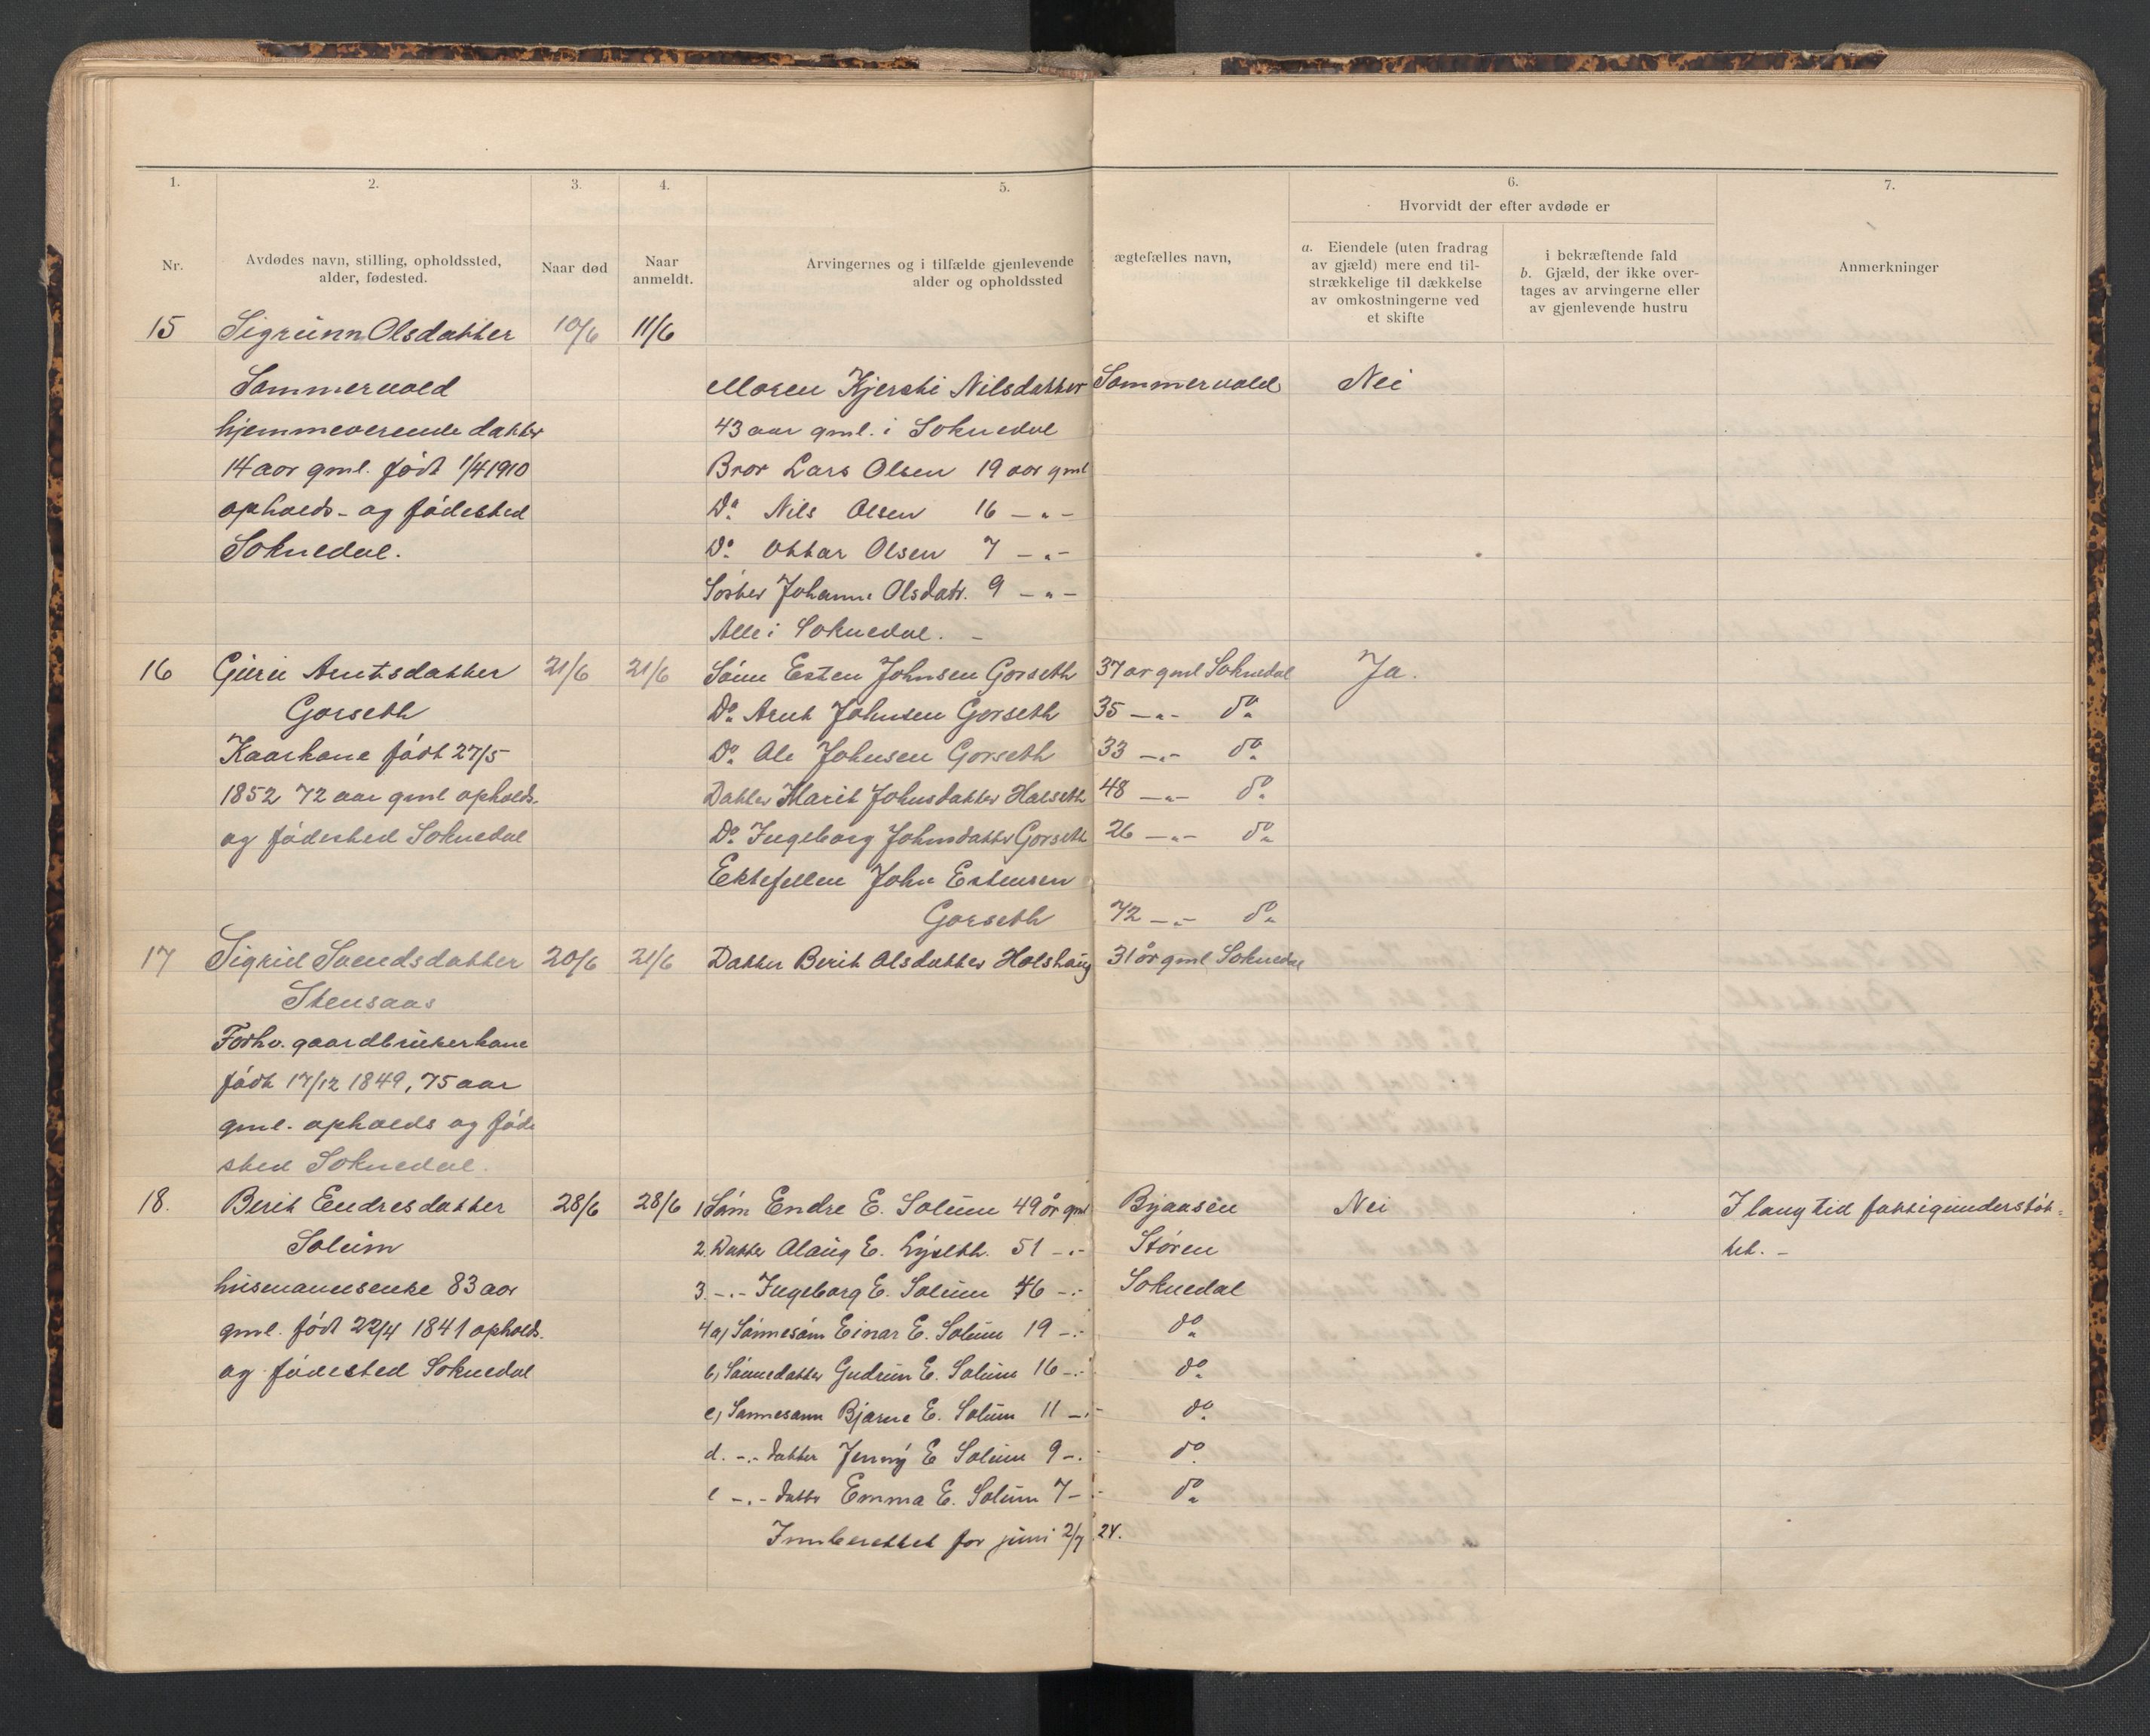 1. 2. 3. 4. 5. 6. 7.
Hvorvidt der efter avdøde er
Nr.
Avdødes navn, stilling, opholdssted,
alder, fødested.
Naar død
Naar
anmeldt.
Arvingernes og i tilfælde gjenlevende ægtefælles navn,
alder og opholdssted
a. Eiendele (uten fradrag
av gjæld) mere end til-
strækkelige til dækkelse
av omkostningerne ved
et skifte
i bekræftende fald
b. Gjæld, der ikke over-
tages av arvingerne eller
av gjenlevende hustru
Anmerkninger
15 Sigrunn Olsdatter 10/6 11/6
Sommervold Moren Kjersti Nilsdatter Sommervold Nei
hjemmeverende datter 43 aar gml. i Soknedal
14 aar gml. født 1/4 1910 Bror Lars Olsen 19 aar gml
opholds- og fødested Do. Nils Olsen 16 -"-
Soknedal. Do. Ottar Olsen 7 -"-
Søster Johanne Olsdatr. 9 -"-
Alle i Soknedal. -
16 Guru Arntsdatter 21/6 21/6 Sønn Esten Johnsen Gorseth 37 år gml Soknedal Ja.
Gorseth Do. Arnt Johnsen Gorseth 35 -"- do.
Kaarkone født 27/5 Do. Ole Johnsen Gorseth 33 -"- do.
1852 72 aar gml opholds. Datter Marit Johnsdatter Halseth 48 -"- do.
og fødested Soknedal Do. Ingeborg Johnsdatter Gorseth 26 -"- do.
Ektefellen John Estensen
Gorseth 72 -"- do.
17 Sigrid Svendsdatter 20/6 21/6 Datter Berit Olsdatter Holshaug 31 år gml Soknedal
Stensaas
Forhv. gaardbrukerkone
født 17/12 1849, 75 aar
gml. opholds og føde
sted Soknedal.
18. Berit Endresdatter 28/6 28/6 1 Sønn Endre E. Solum 49 år gml Bjaasen Nei I lang tid fattigunderstøt-
Solum 2. Datter Olaug E. Lyseth. 51 -"- Støren tet. -
husmannsenke 83 aar 3. -"- Ingeborg E. Solum 46 -"- Soknedal
gml. født 22/4 1841 opholds. 4 a) Sønnesønn Einar E. Solum 19 -"- do.
og fødested Soknedal b) Sønnedatter Gudrun E. Solum 16 -"- do.
c) Sønnesønn Bjarne E. Solum 11 -"- do.
d. -"- datter Jenny E Solum 9 -"- do.
e -"- datter Emma E. Solum 7 -"- do.
Innberettet for juni 2/7 24.